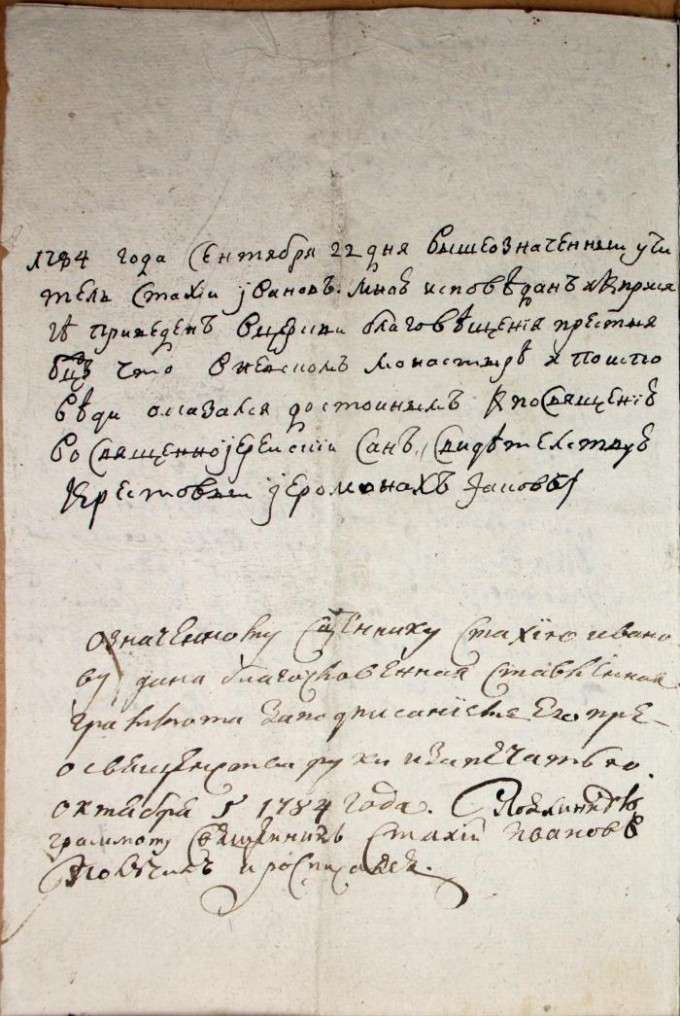 1784 года Сентября 22 дня вышеозначенныи учи
тель Стахiи iвановъ. мною исповѣданъ i къ прися
гѣ приведенъ въ церкви благовѣщенiя престыя
бцы что в невском монастырѣ и по испо
вѣди оказался достоинымъ к посвященiю
во священноiерейскiи санъ, свидѣтелствую
крестовыи iеромонахъ Iаковъ
означенному сщеннику Стахiю ивано
ву дана благословенная ставленная
граммота заподписанiемъ Его пре-
освященства руки изапечатью.
октября 5 1784 года. Подлинную
граммоту священникъ Стахiй Ивановъ
получилъ и росписался.